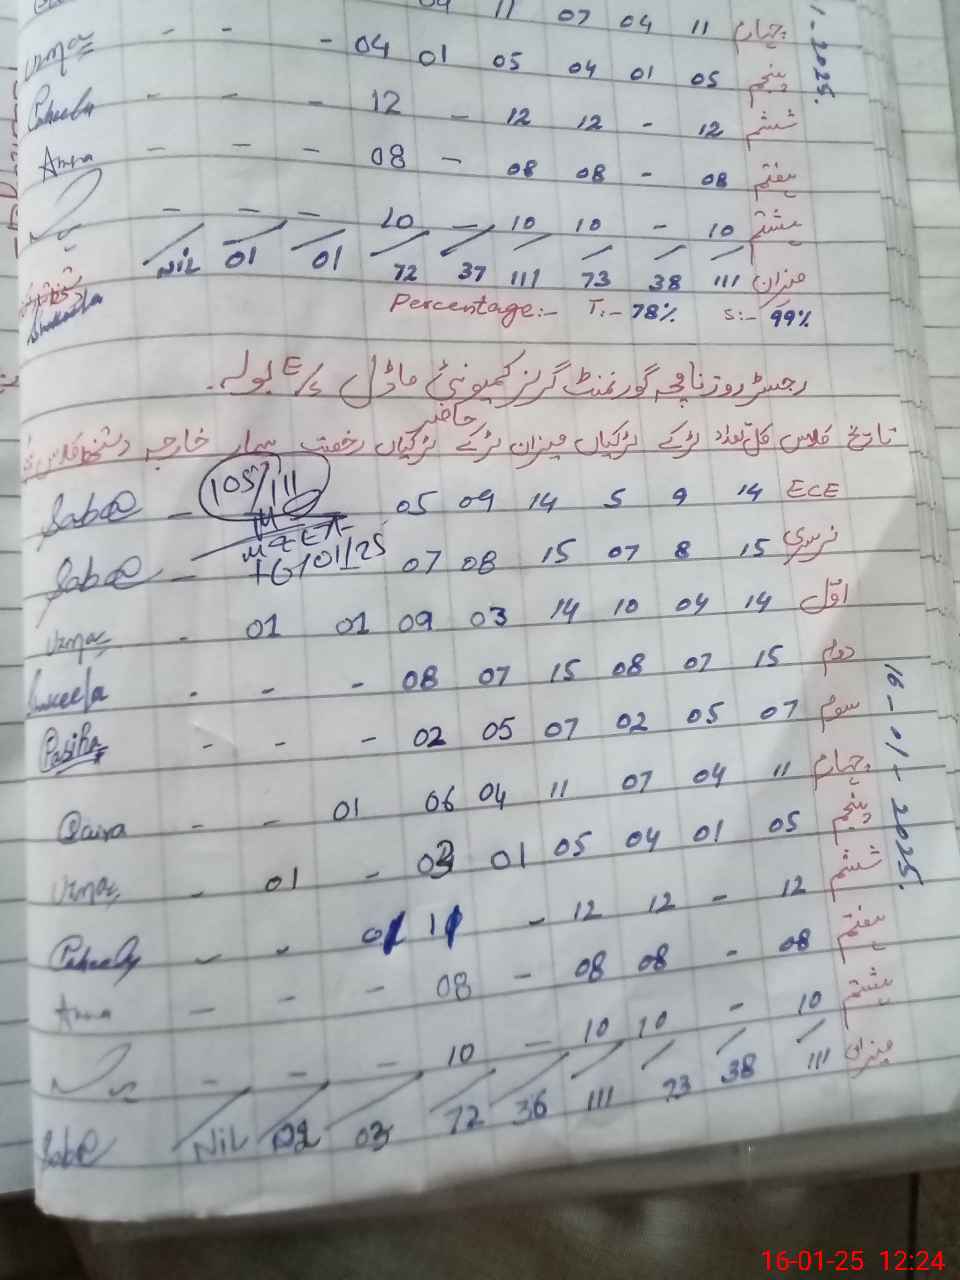 04 11 07 04 11 چہارم
Uzma - - - 04 01 05 04 01 05 پنجم
- - - 12 - 12 12 - 12 ششم
Amna - - - 08 - 08 08 - 08 ہفتم
- - - 10 - 10 10 - 10 ہشتم
NiL 01 01 72 37 111 73 38 111 میزان
Percentage:- T:- 78% S:- 99%
1-2025.
رجسٹر روزنامچہ گورنمنٹ گرلز کمیونٹی ماڈل E/S بولہ.
حاضر
تاریخ کلاس کل تعداد لڑکے لڑکیاں میزان لڑکے لڑکیاں رخصت بیمار خارجہ دستخط کلاس
Saba - 105/111 05 09 14 5 9 14 ECE
Saba - 07 08 15 07 8 15 نرسری
16/01/25
Uzma - 01 01 09 03 14 10 04 14 اوّل
- - - 08 07 15 08 07 15 دوم
Pasiha - - - 02 05 07 02 05 07 سوم
- - 01 06 04 11 07 04 11 چہارم
Uzma - 01 - 03 01 05 04 01 05 پنجم
- - 01 11 - 12 12 - 12 ششم
Amna - - - 08 - 08 08 - 08 ہفتم
- - - 10 - 10 10 - 10 ہشتم
Saba NiL 02 03 72 36 111 73 38 111 میزان
16-01-2025.
16-01-25 12:24